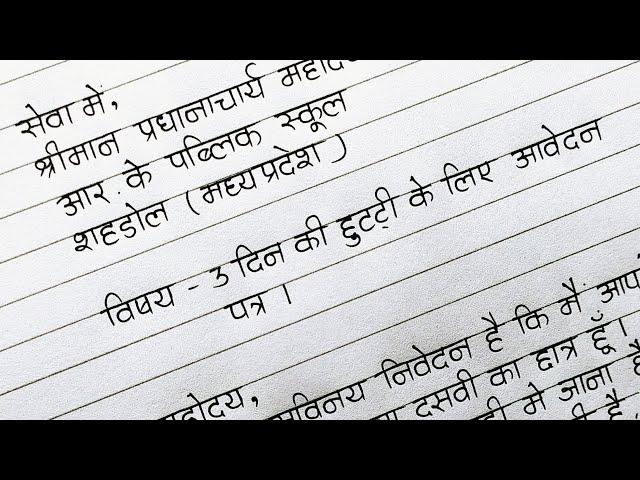 सेवा में,
श्रीमान प्रधानाचार्य महोदय
आर. के पब्लिक स्कूल
शहडोल (मध्य प्रदेश)
विषय - 3 दिन की छुटटी के लिए आवेदन
पत्र ।
महोदय,
सविनय निवेदन है कि मैं आपके
दसवी का छात्र हूँ।
में जाना है
है